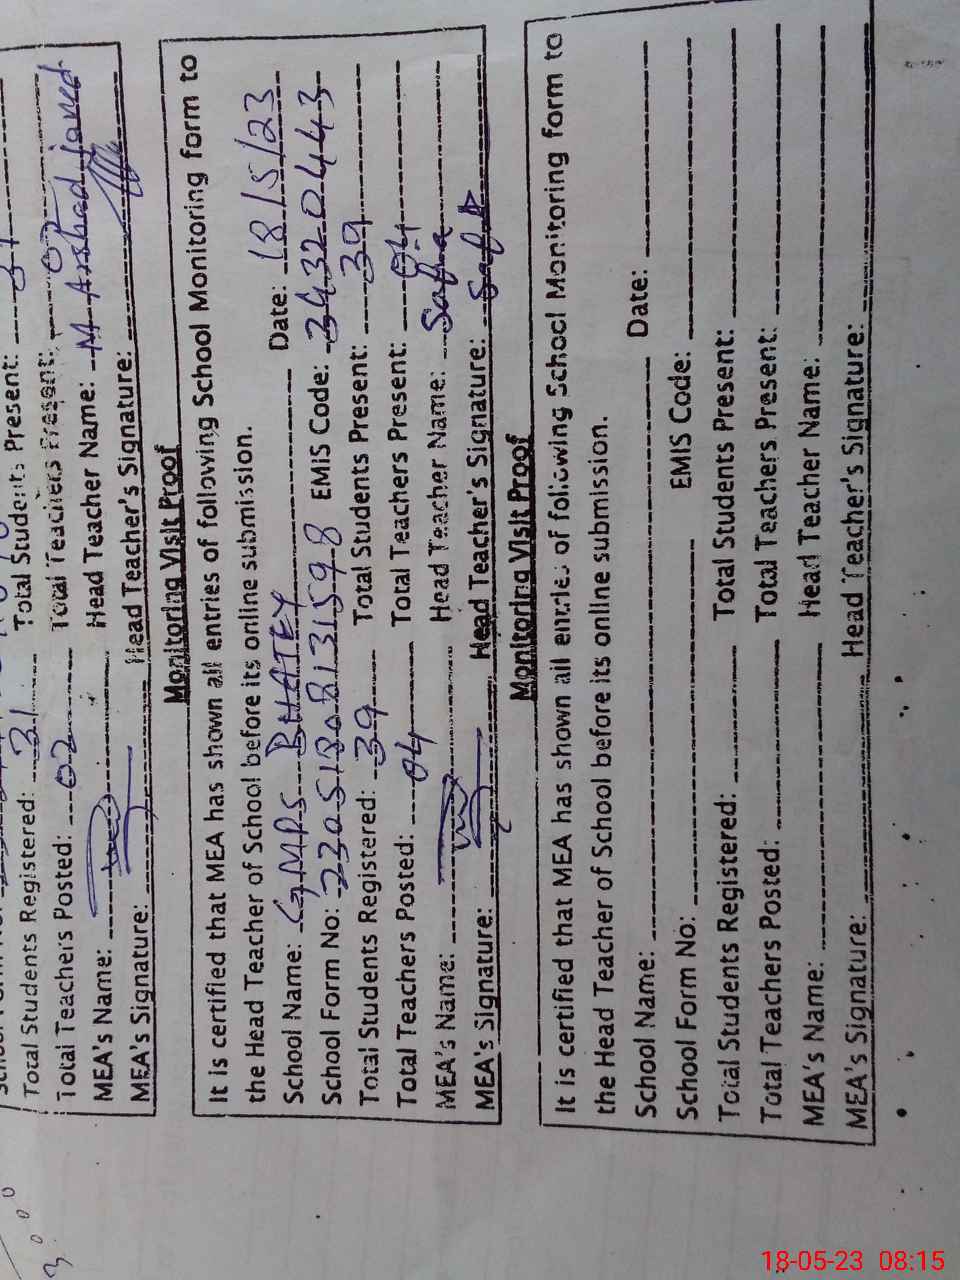 Total Students Registered: 31 Total Students Present: 31
Total Teachers Posted: 02 Total Teachers Present: 02
MEA's Name: Head Teacher Name: M Arshad javed
MEA's Signature: Head Teacher's Signature:
Monitoring Visit Proof
It is certified that MEA has shown all entries of following School Monitoring form to
the Head Teacher of School before its online submission.
School Name: GMPS BHATEY Date: 18/5/23
School Form No: EMIS Code: 34320443
Total Students Registered: 39 Total Students Present: 39
Total Teachers Posted: 04 Total Teachers Present: 04
MEA's Name: Head Teacher Name: Safia
MEA's Signature: Head Teacher's Signature:
Monitoring Visit Proof
It is certified that MEA has shown all entries of following School Monitoring form to
the Head Teacher of School before its online submission.
School Name: Date:
School Form No: EMIS Code:
Total Students Registered: Total Students Present:
Total Teachers Posted: Total Teachers Present:
MEA's Name: Head Teacher Name:
MEA's Signature: Head Teacher's Signature:
18-05-23 08:15